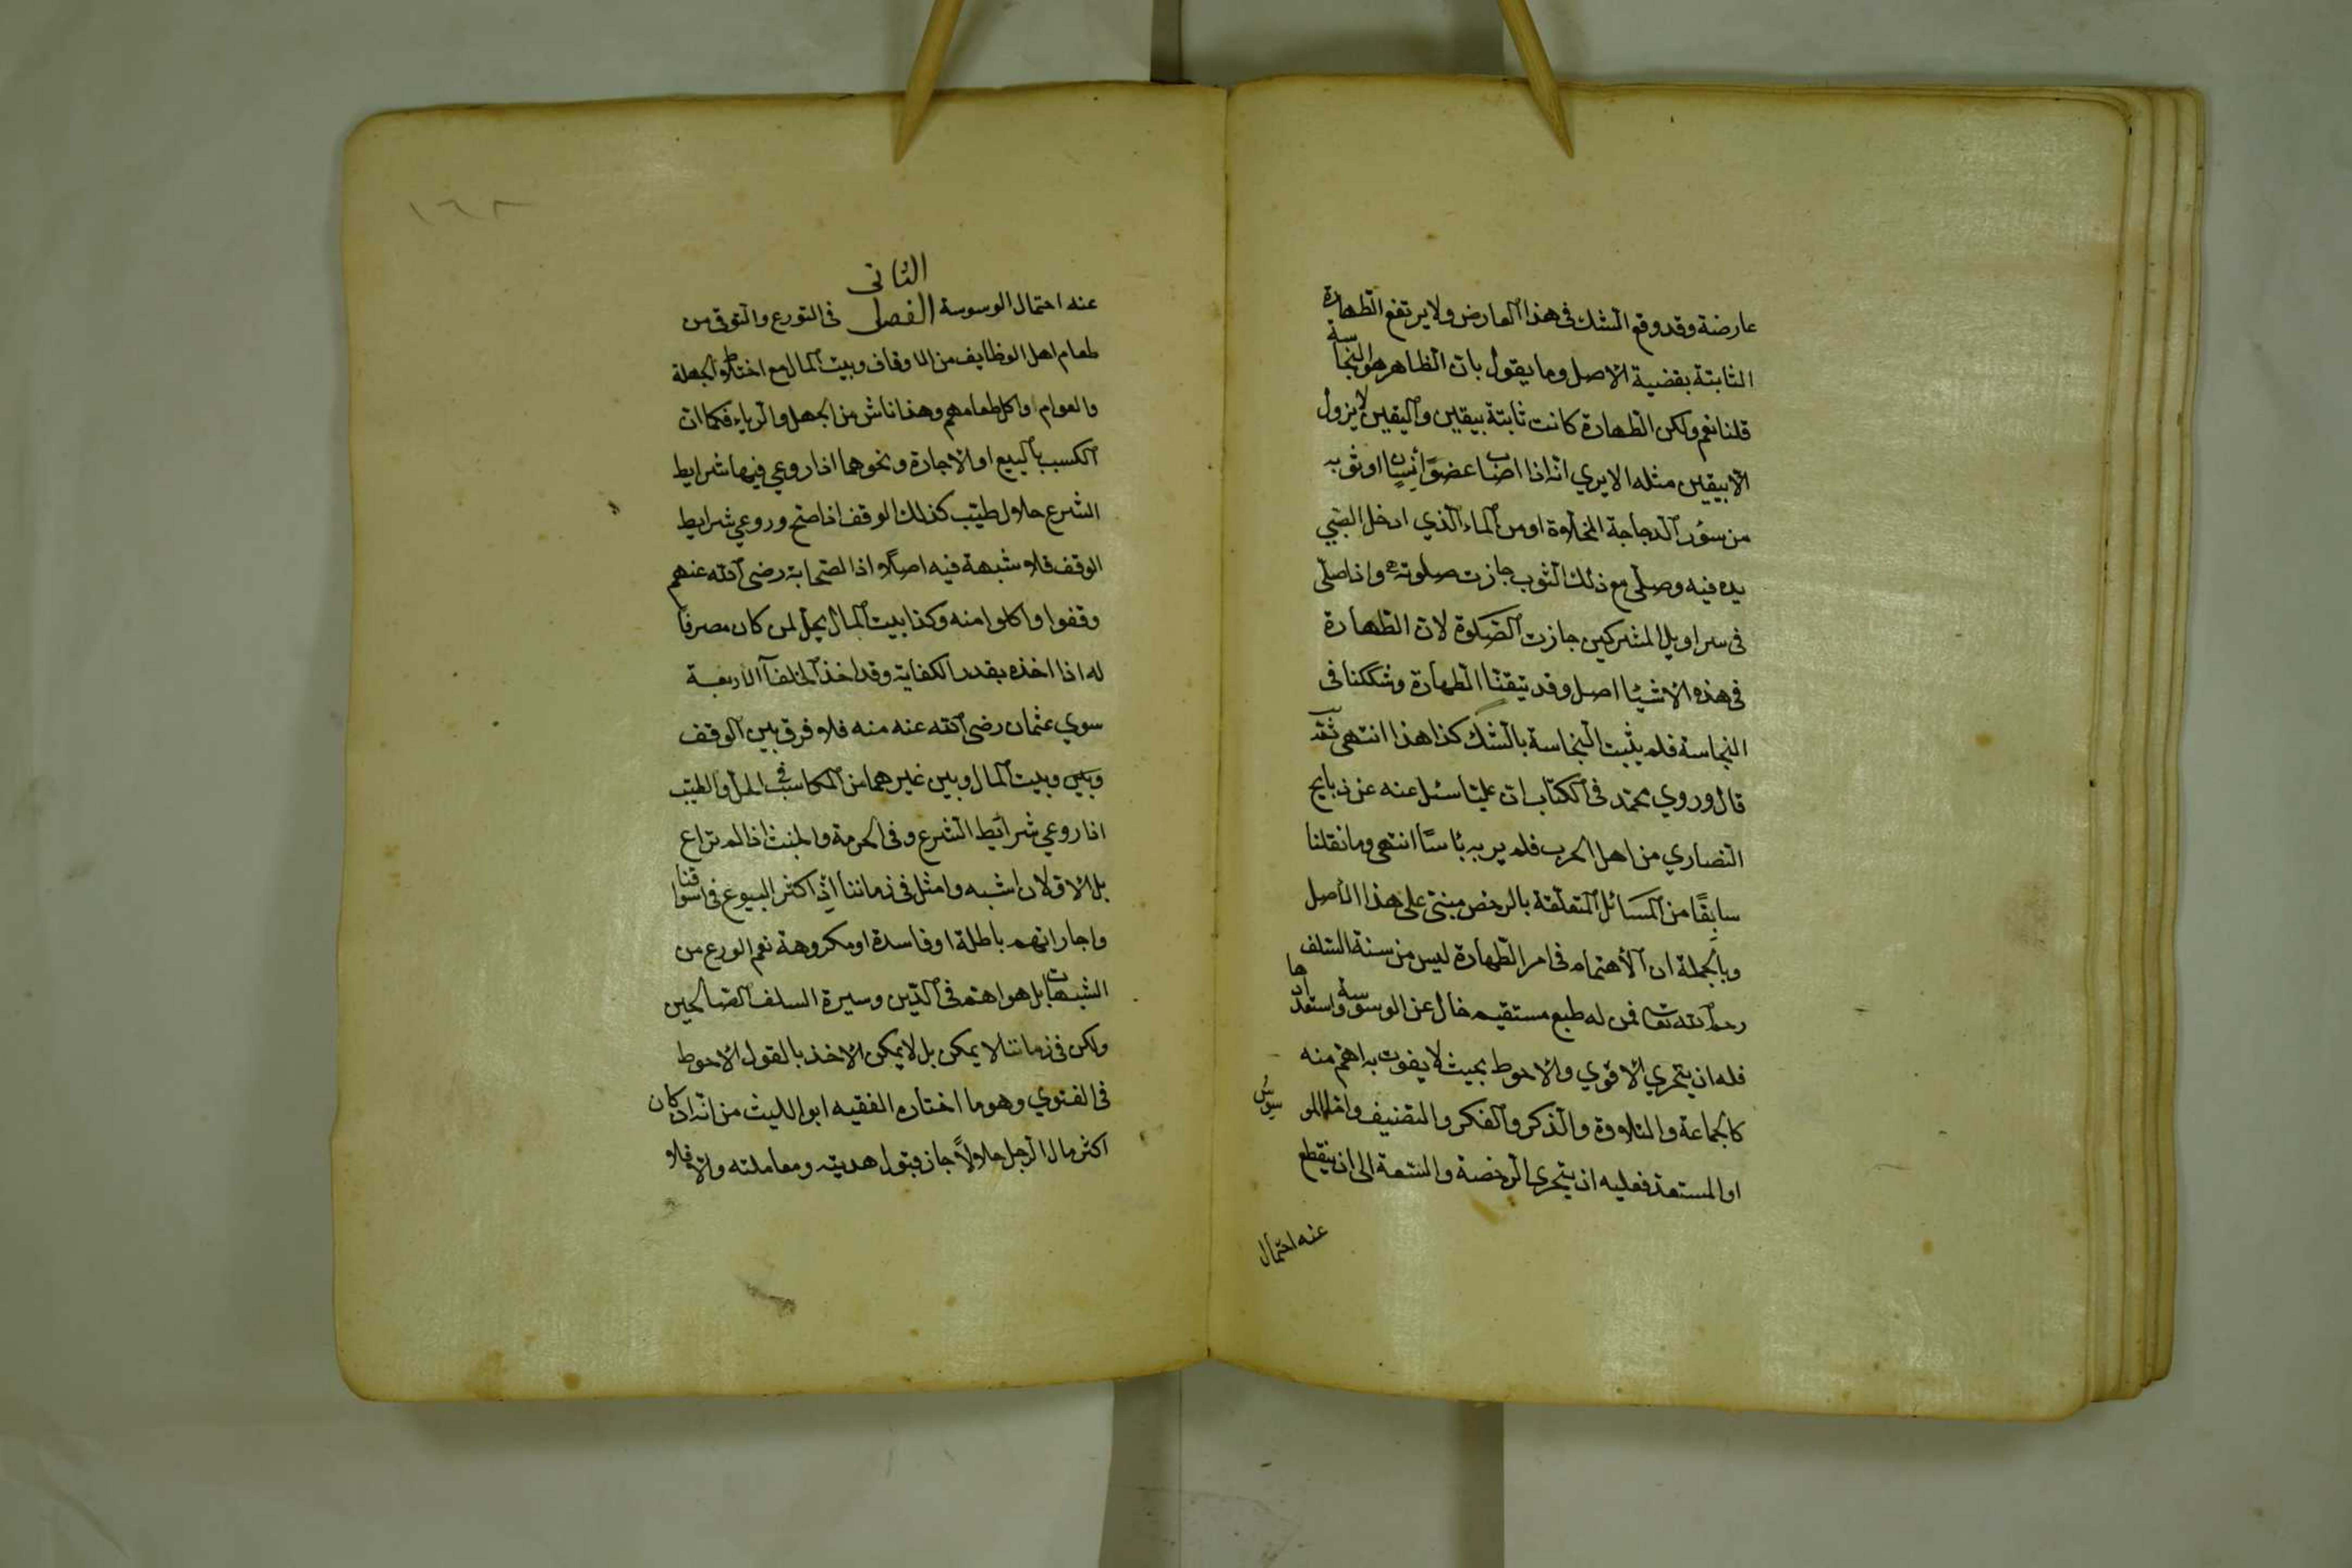 عارضة وقد وقع الشك فى هذا العارض ولا يرتفع الطهارة
الثابتة بقضية الاصل وما يقول بان الظاهر هو النجاسة
قلنا نعم ولكن الطهارة كانت ثابتة بيقين واليقين لا يزول
الا بيقين مثله الا يري انه اذا اصاب عضو انسان او ثوبه
من سؤر الدجاجة المخلاوة او من الماء الذي ادخل الصبي
يده فيه وصلى مع ذلك الثوب جازت صلوته واذا صلى
فى سراويل المشركين جازت الصلوة لان الطهارة
فى هذه الاشيا اصل وقد تيقنا الطهارة وشككنا فى
النجاسة فلم يثبت النجاسة بالشك كذا هذا انتهى ثم
قال وروي محمد فى الكتاب ان عليا سئل عنه عن ذبايح
النصاري من اهل الحرب فلم ير به بأسا انتهى وما نقلنا
سابقًا من المسائل المتعلقة بالرخص مبنى على هذا الاصل
وبالجملة ان الأهتمام فى امر الطهارة ليس من سنة السلف
رحمه الله تعا فمن له طبع مستقيم خال عن الوسوسة واستعدادها
فله ان يتحري الاقوي والاحوط بحيث لا يفوت به اهم منه
كالجماعة والتلاوة والذكر والفكر والتصنيف واما الموسوس
او المستعد فعليه ان يتحرى الرخصة والسعة الى ان ينقطع
عنه احتمال
١٦٢
عنه احتمال الوسوسة الفصل الثانى فى التورع والتوقى من
طعام اهل الوظايف من الاوقاف وبيت المال مع اختلاط الجهلة
والعوام واكل طعامهم وهذا ناش من الجهل والرياء فكما ان
الكسب بالبيع او الاجارة ونحوهما اذا روعي فيها شرايط
الشرع حلال طيب كذلك الوقف اذا صح وروعي شرايط
الوقف فلا شبهة فيه اصلا اذ الصحابة رضى الله عنهم
وقفوا واكلوا منه وكذا بيت المال يحل لمن كان مصرفا
له اذا اخذه بقدر الكفاية وقد اخذ الخلفآ الاربعة
سوي عثمان رضى الله عنه منه فلا فرق بين الوقف
وبين وبيت المال وبين غيرهما من المكاسب فى الحل والطيب
اذا روعي شرائط الشرع وفى الحرمة والخبث اذا لم تراع
بل الاولان اشبه وامثل فى زماننا اذ اكثر البيوع فى اسواقنا
واجاراتهم باطلة او فاسدة او مكروهة نعم الورع من
الشبهات بل هو اهم فى الدين وسيرة السلف الصالحين
ولكن فى زماننا لا يمكن بل لا يمكن الاخذ بالقول الاحوط
فى الفتوي وهو ما اختاره الفقيه ابو الليث من انه ان كان
اكثر مال الرجل حلالاً جاز قبول هديته ومعاملته والا فلا